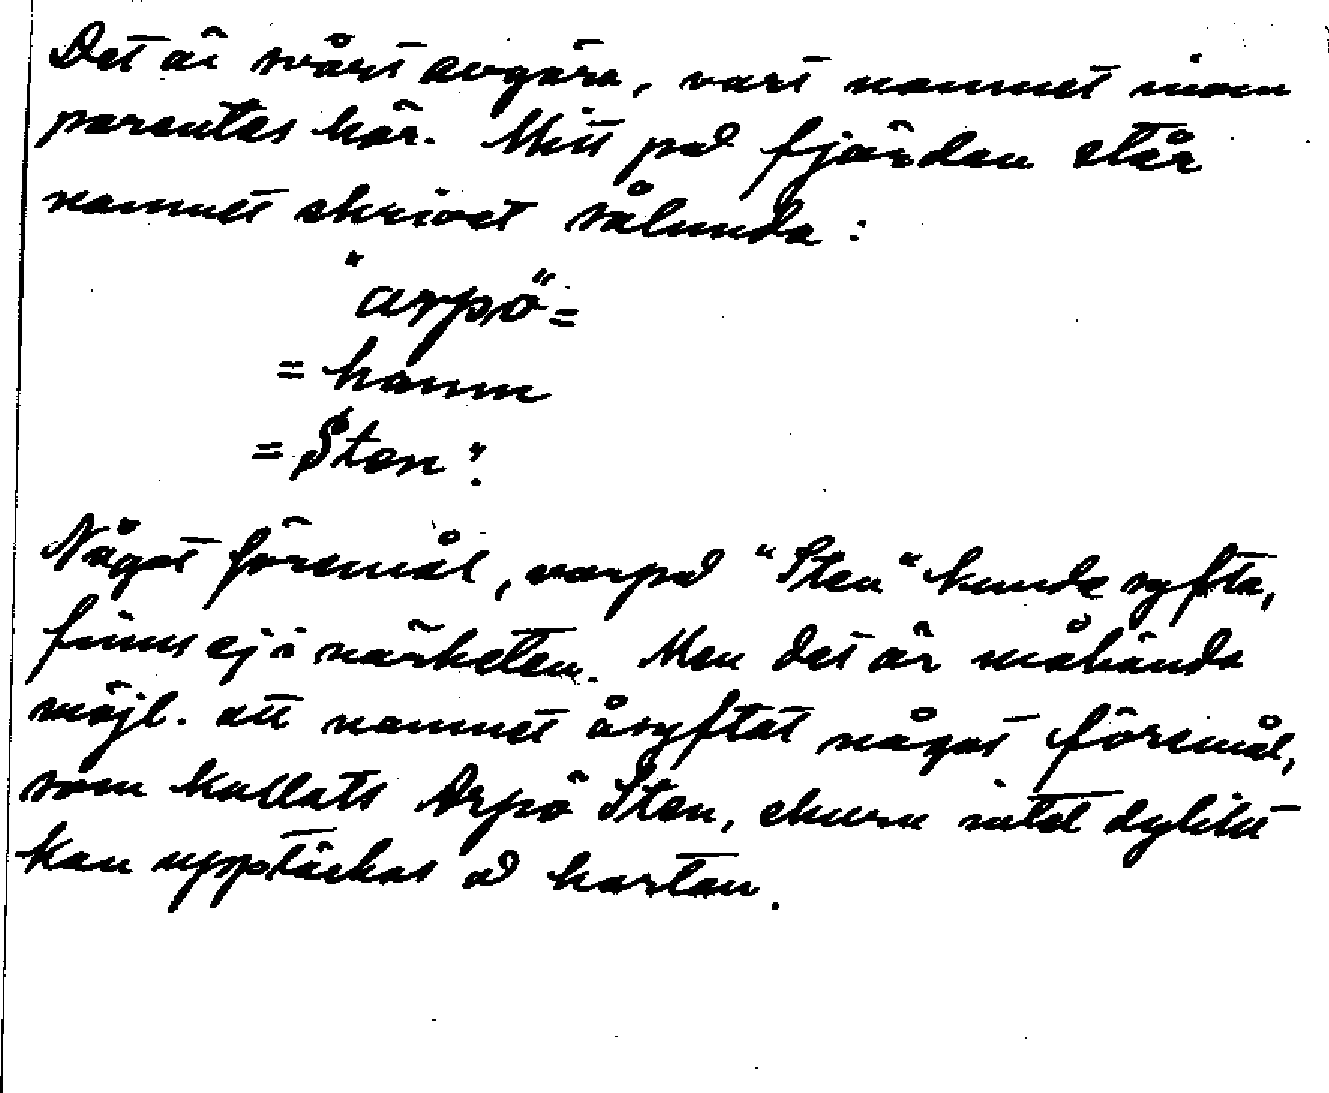 Det är svårt avgöra, vart namnet inom
parentes hör. Mitt på fjärden står
namnet skrivet sålunda:
"arpö"=
=hamn
=Sten":
Något föremål, varpå "Sten" kunde syfta,
finns ej i närheten. Men det är måhända
möjl. att namnet åsyftat något föremål,
som kallats Arpö Sten, ehuru intet dylikt
kan upptäckas å kartan.